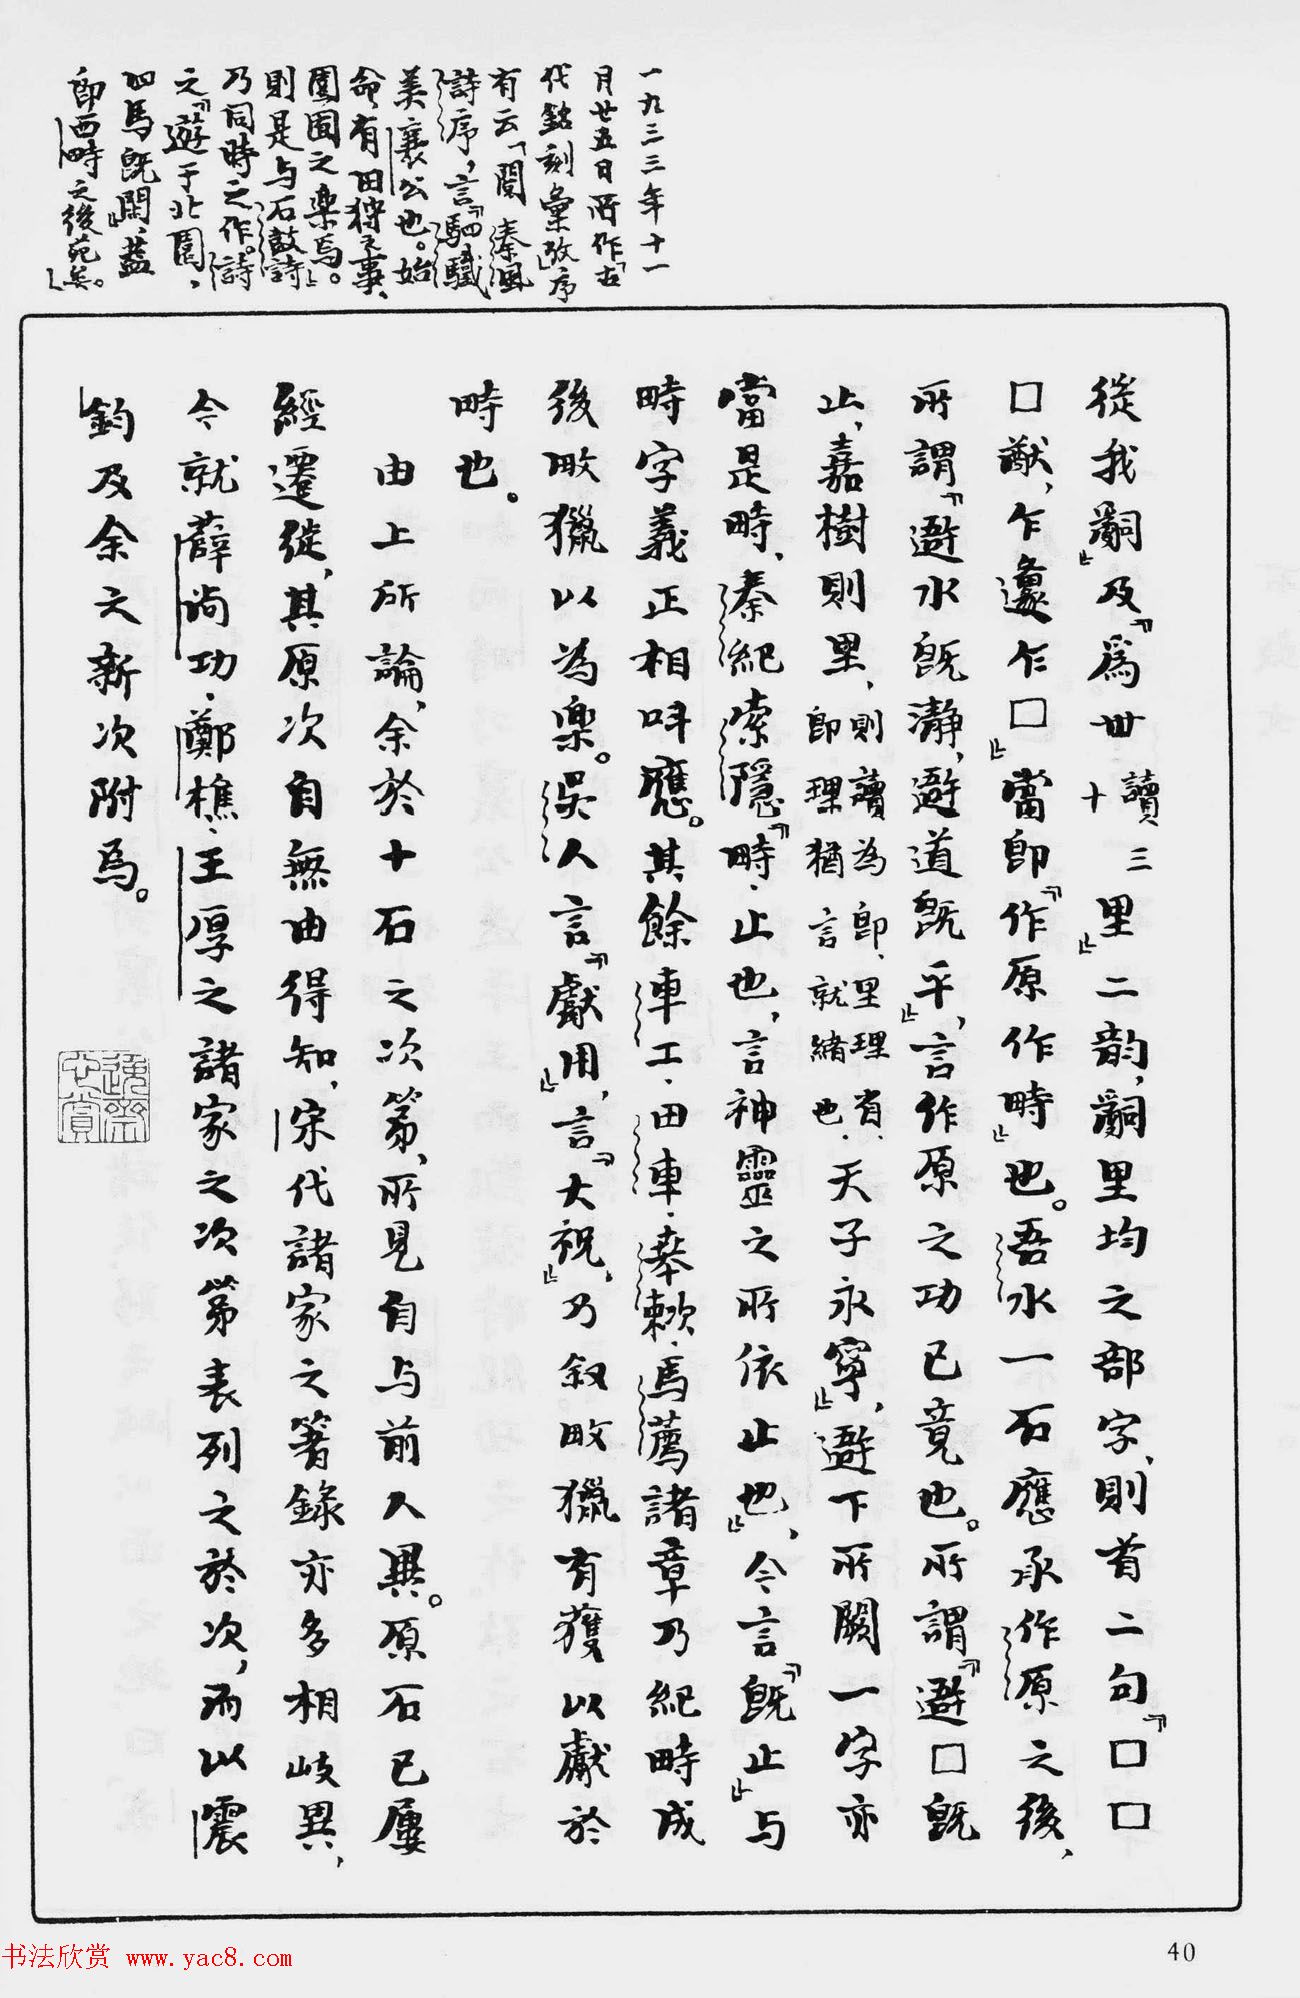 一九三三年十一
月廿五日所作「古
代銘刻彙攷」序
有云「閱秦風
詩序，言『駟驖
美襄公也。始
命，有田狩之事、
園囿之樂焉。』
則是与石鼓詩
乃同時之作。詩
之『遊于北園、
四馬既閑』，蓋
即西畤之後苑矣。」
從我嗣」及「爲丗讀三十里」二韵，嗣里均之部字，則首二句「□□
□猷，乍邍乍□」當即「作原作畤」也。吾水一石應承作原之後，
所謂「避水既瀞，避道既平」，言作原之功已竟也。所謂「避□既
止，嘉樹則里，則讀為即、里理省、即理猶言就緒也．天子永寧」，避下所闕一字亦
當是畤，秦紀索隱「畤．止也，言神靈之所依止也」，今言「既止」与
畤字義正相呼應。其餘車工．田車．奉敕．馬薦諸章乃紀畤成
後畋獵以為樂。吴人言「獻用」，言「大祝」，乃叙畋獵有獲以獻於
畤也。
由上所論，余於十石之次第，所見自与前人異。原石已屢
經遷徙，其原次自無由得知，宋代諸家之箸錄亦多相歧異，
今就薛尚功．鄭樵．王厚之諸家之次第表列之於次，而以震
鈞及余之新次附焉。
书法欣赏 www.yac8.com
40